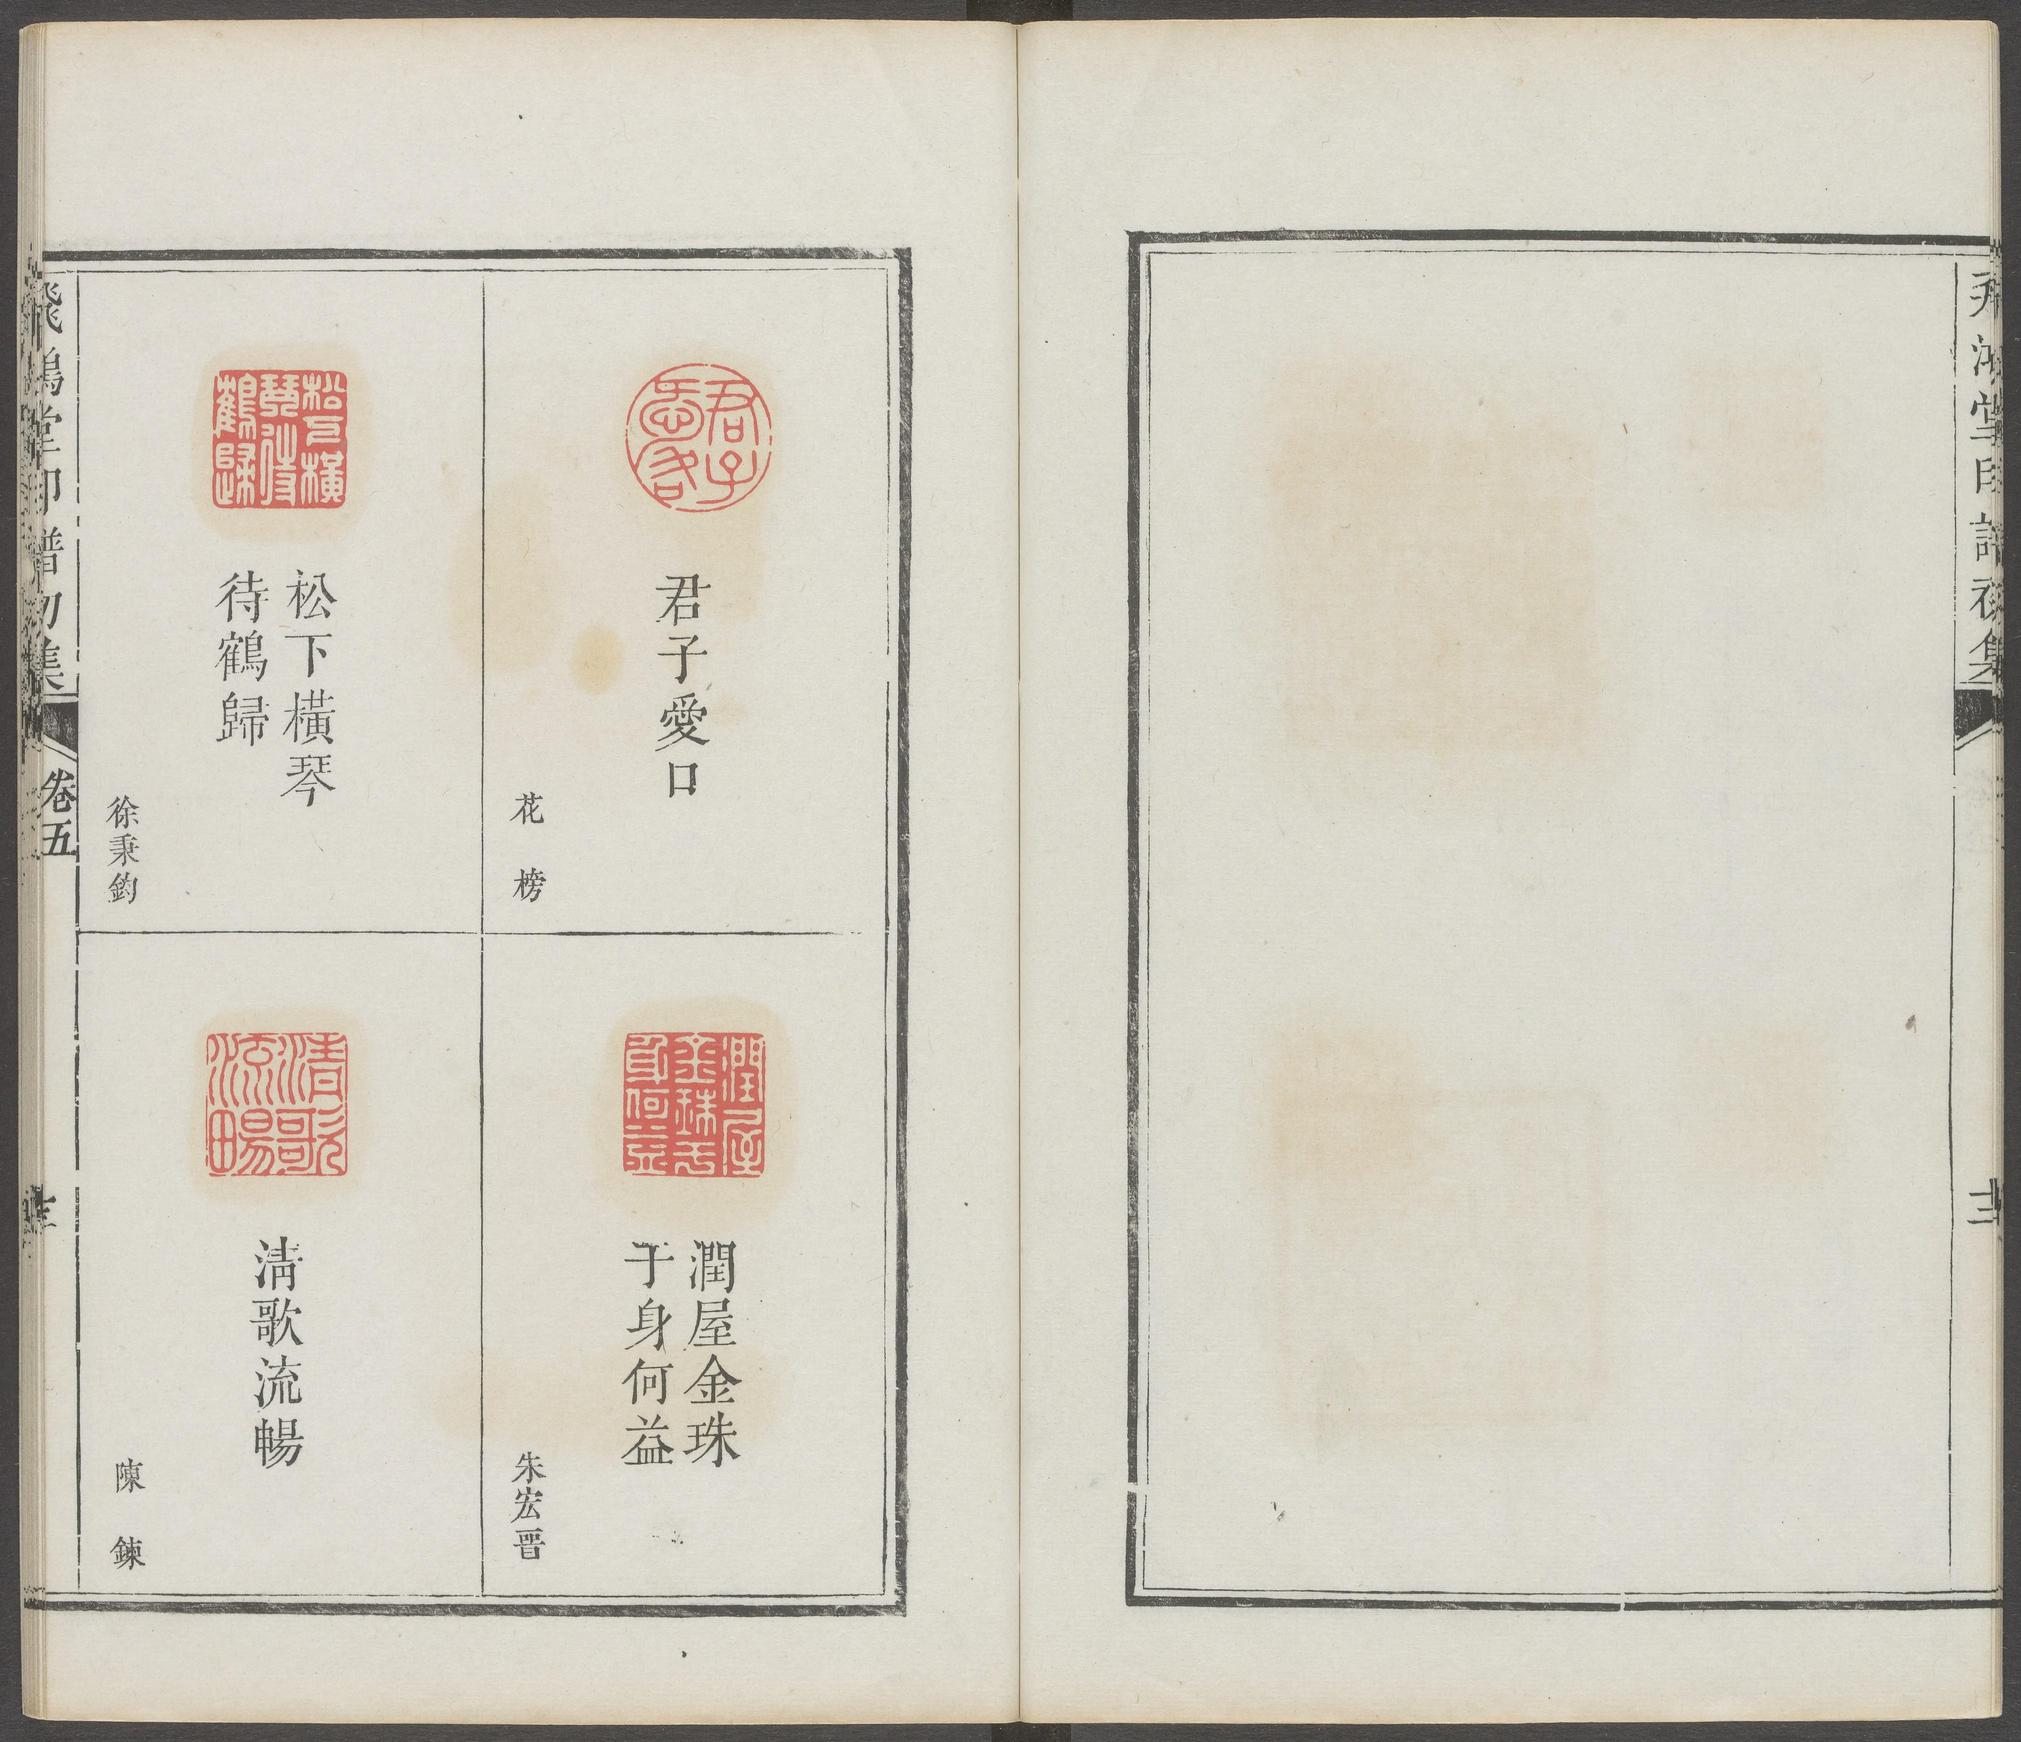 飛鴻堂印譜初集
君子愛口
花榜
潤屋金珠
于身何益
朱宏晋
松下橫琴
待鶴歸
徐秉鈞
清歌流暢
陳鍊
飛鴻堂印譜初集
卷五